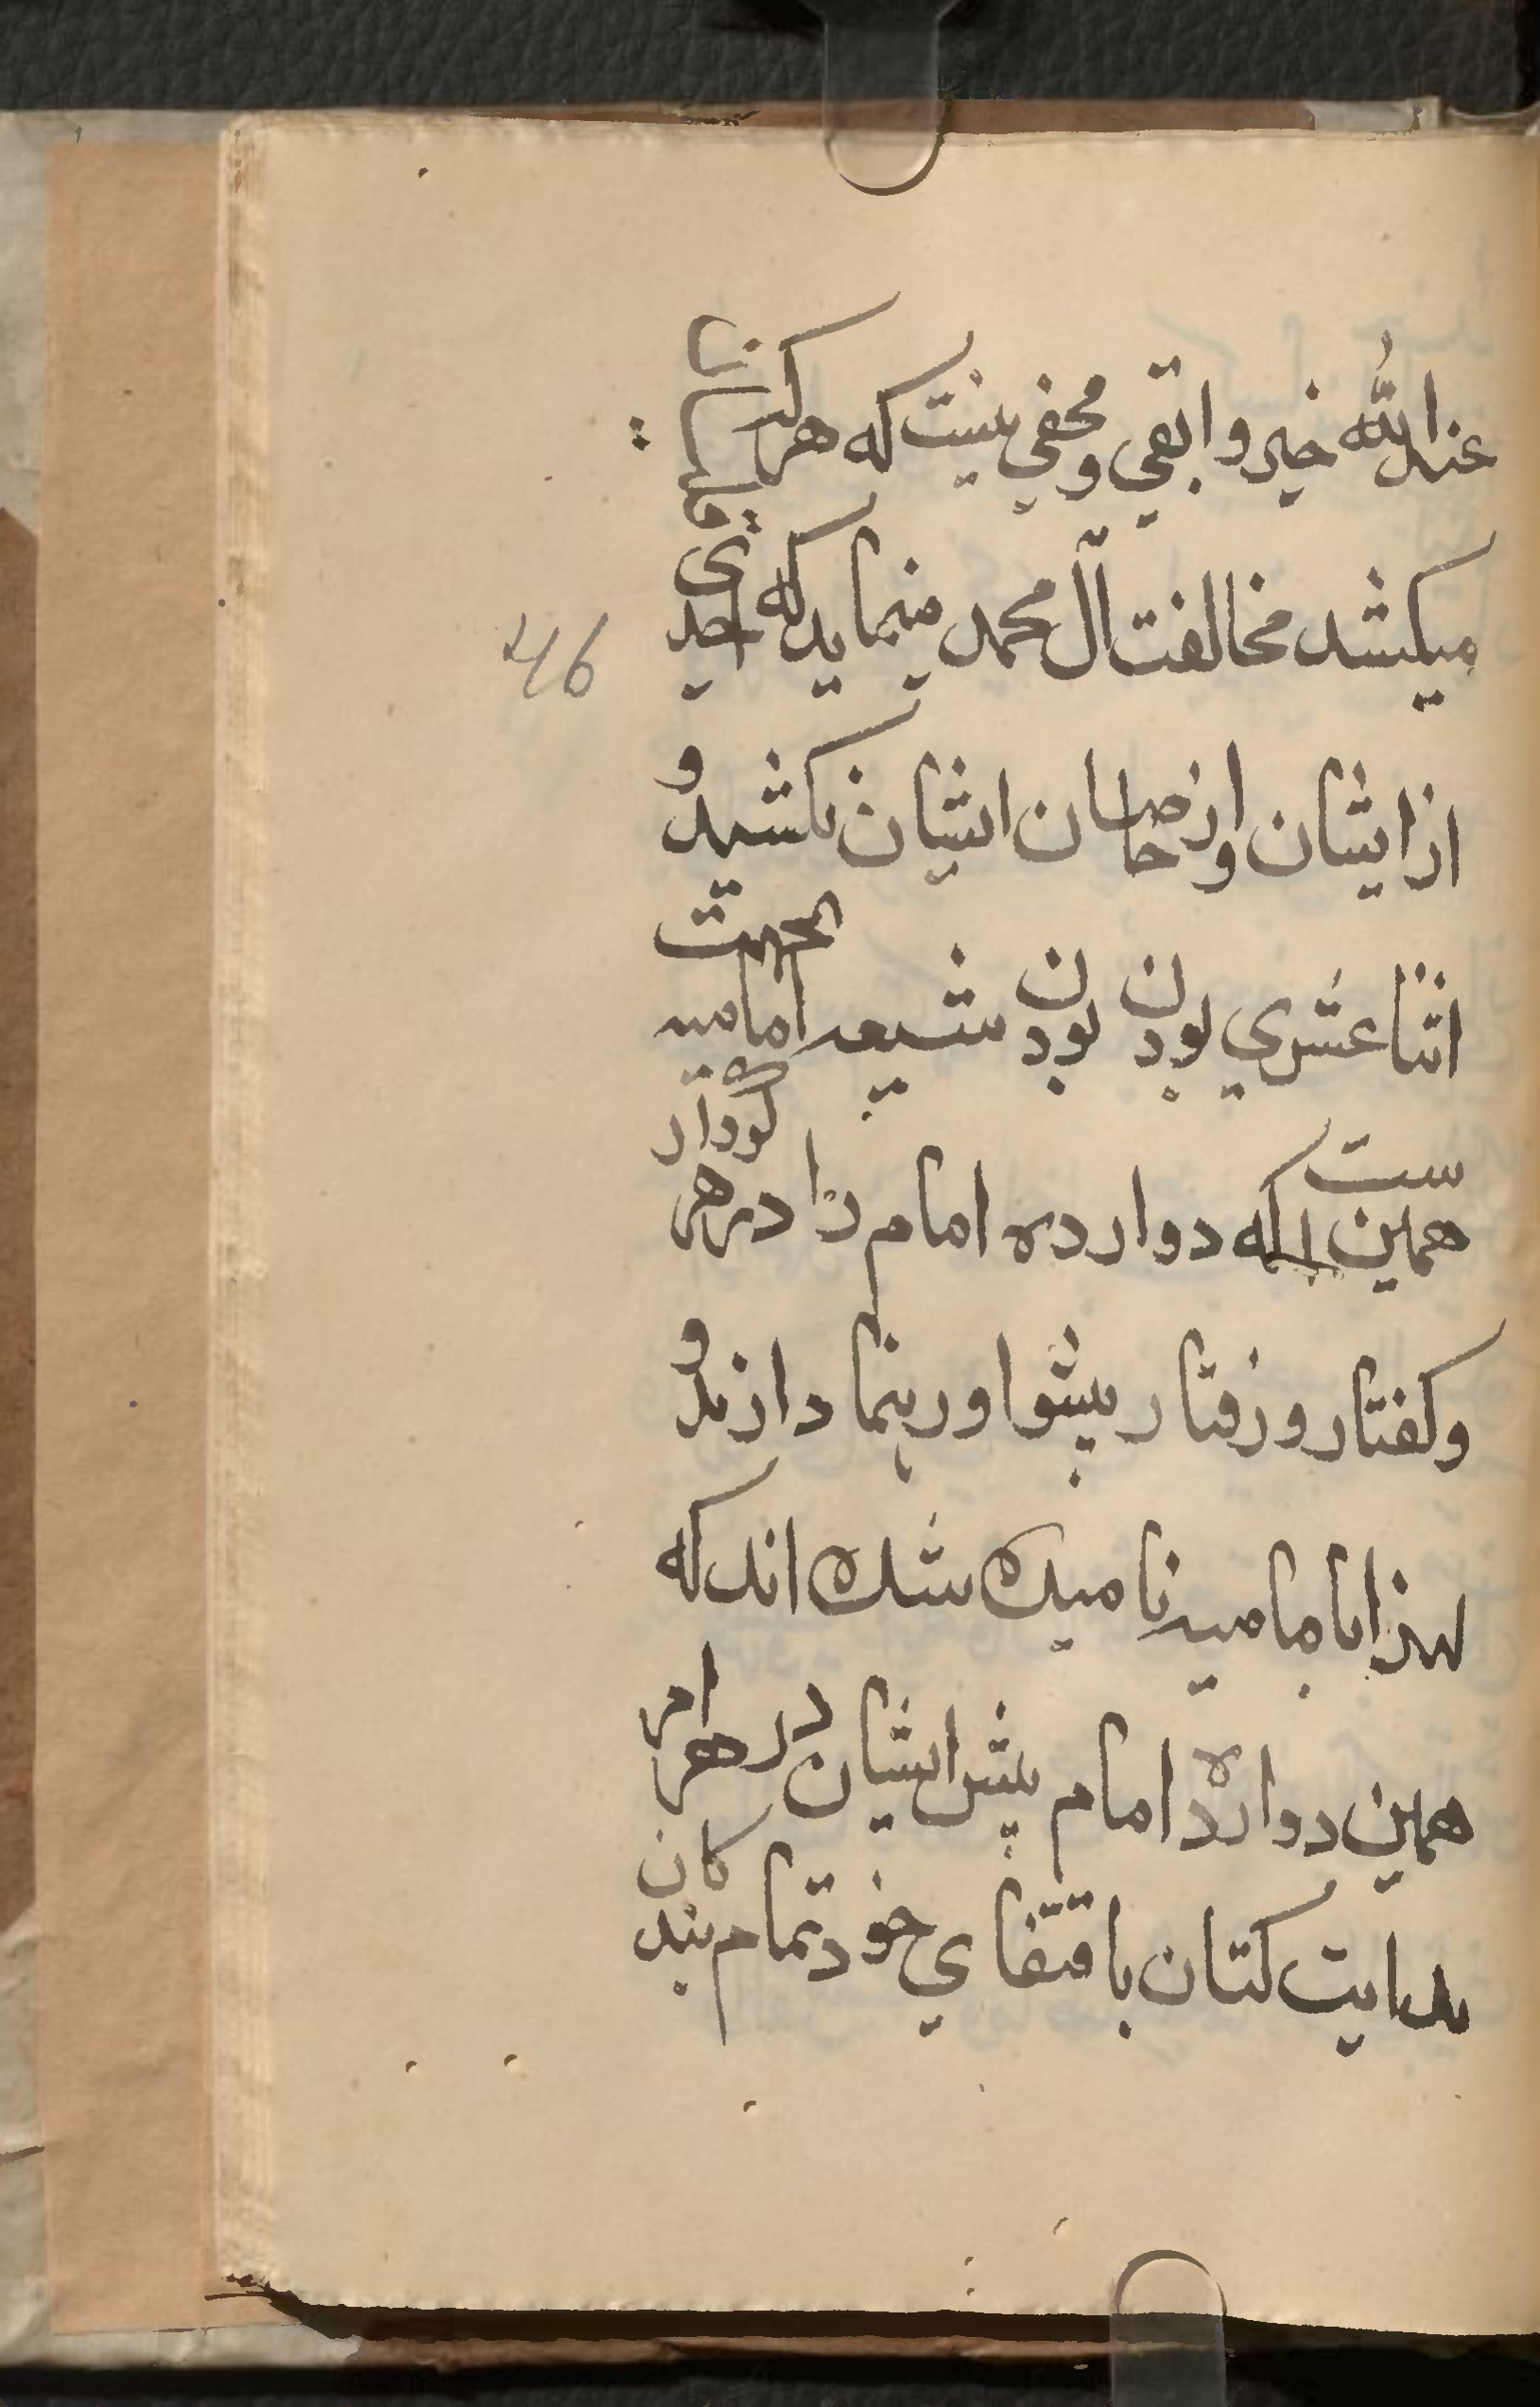 عند الله خیر وابقی ومخفی نیست که هرکه تنباکو
میکشد مخالفت آل محمد مینماید که احدی
از ایشان و از خاصان ایشان نکشید و
اثنا عشري بودن بودن شیعه امامیه
همین ست که دوازده امام را در هر کردار
وکفتار ورفتار پیشوا ورهنما دارند و
لهذا بامامیه نامیده شده اند که
همین دوازده امام پیش ایشان در هر امر
هدایت کنان باقتفای خود تمام بندکان
46